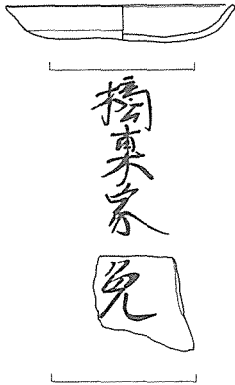 橘東家
免